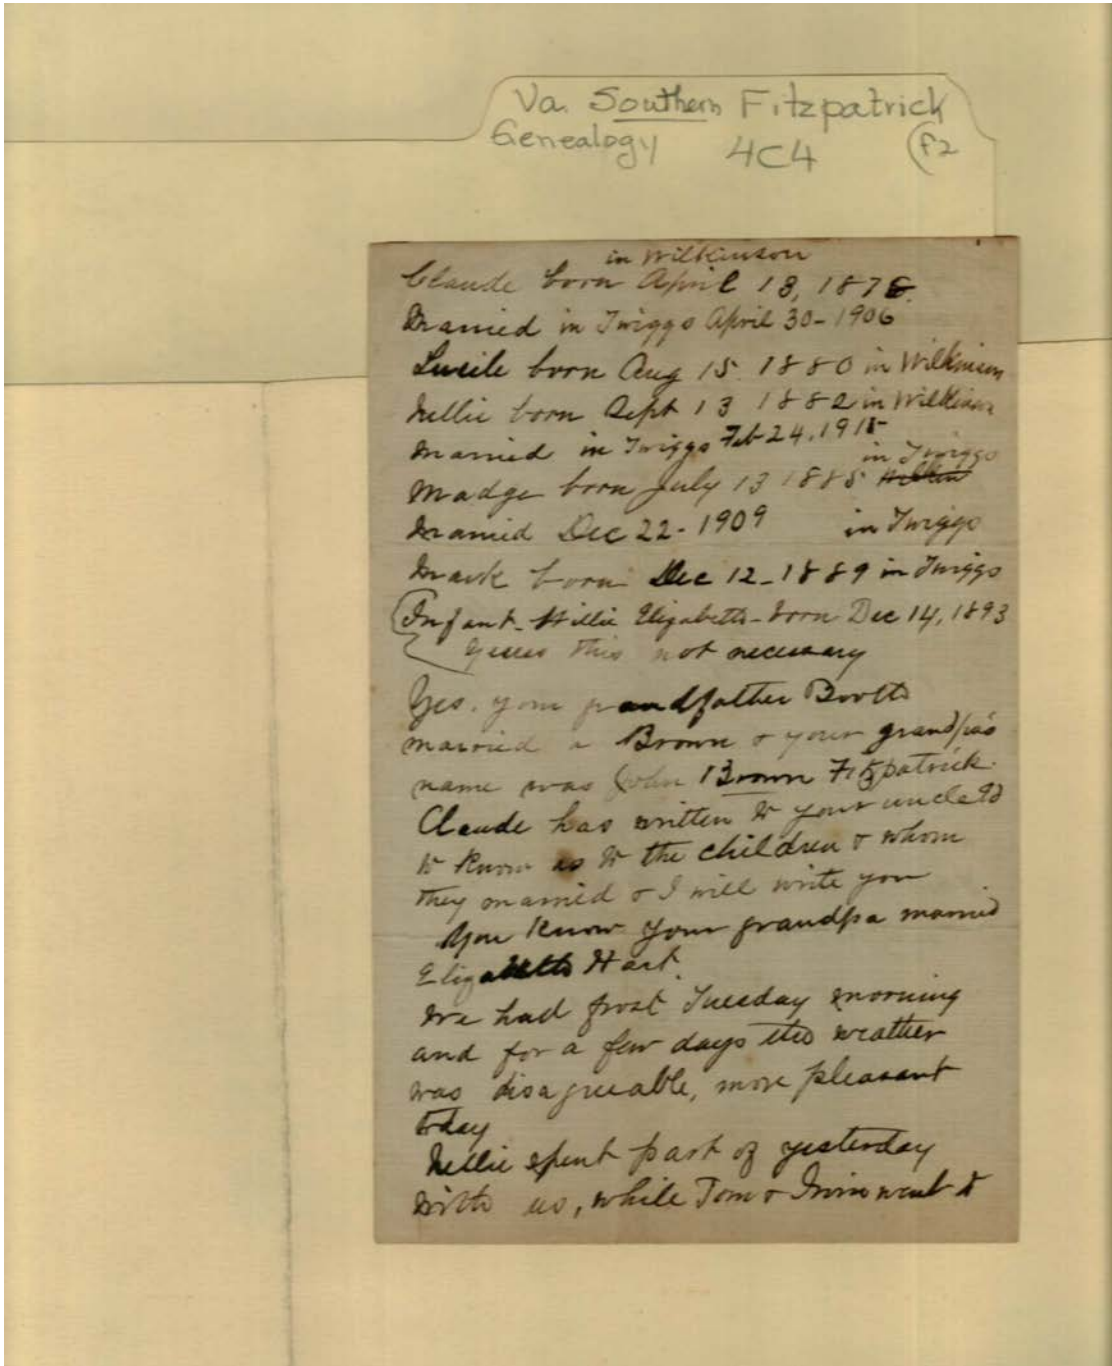 Va. Southern Fitzpatrick
Genealogy 4C4 (f2
in Wilkinson
Claude born April 18, 1878.
Married in Twiggs April 30 - 1906
Lucile born Aug 15. 1880 in Wilkinson
Nellie born Sept 13 1882 in Wilkinson
Married in Twiggs Feb 24, 1915
in Twiggs
Madge born July 13 1885
Married Dec 22 - 1909 in Twiggs
Mark born Dec 12 - 1889 in Twiggs
(Infant - Willie Elizabeth - born Dec 14, 1893
guess this not necessary
Yes, your grandfather Booth
married a Brown & your grandpa's
name was John Brown Fitzpatrick.
Claude has written to your uncle
to know as to the children & whom
they married & I will write you
You know your grandpa married
Elizabeth Hart.
We had frost Tuesday morning
and for a few days the weather
was disagreeable, more pleasant
today
Nellie spent part of yesterday
with us, while Tom & went to